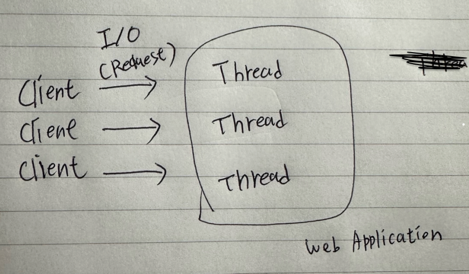 I/O
(Request)
Client Thread
Client Thread
Client Thread
Web Application